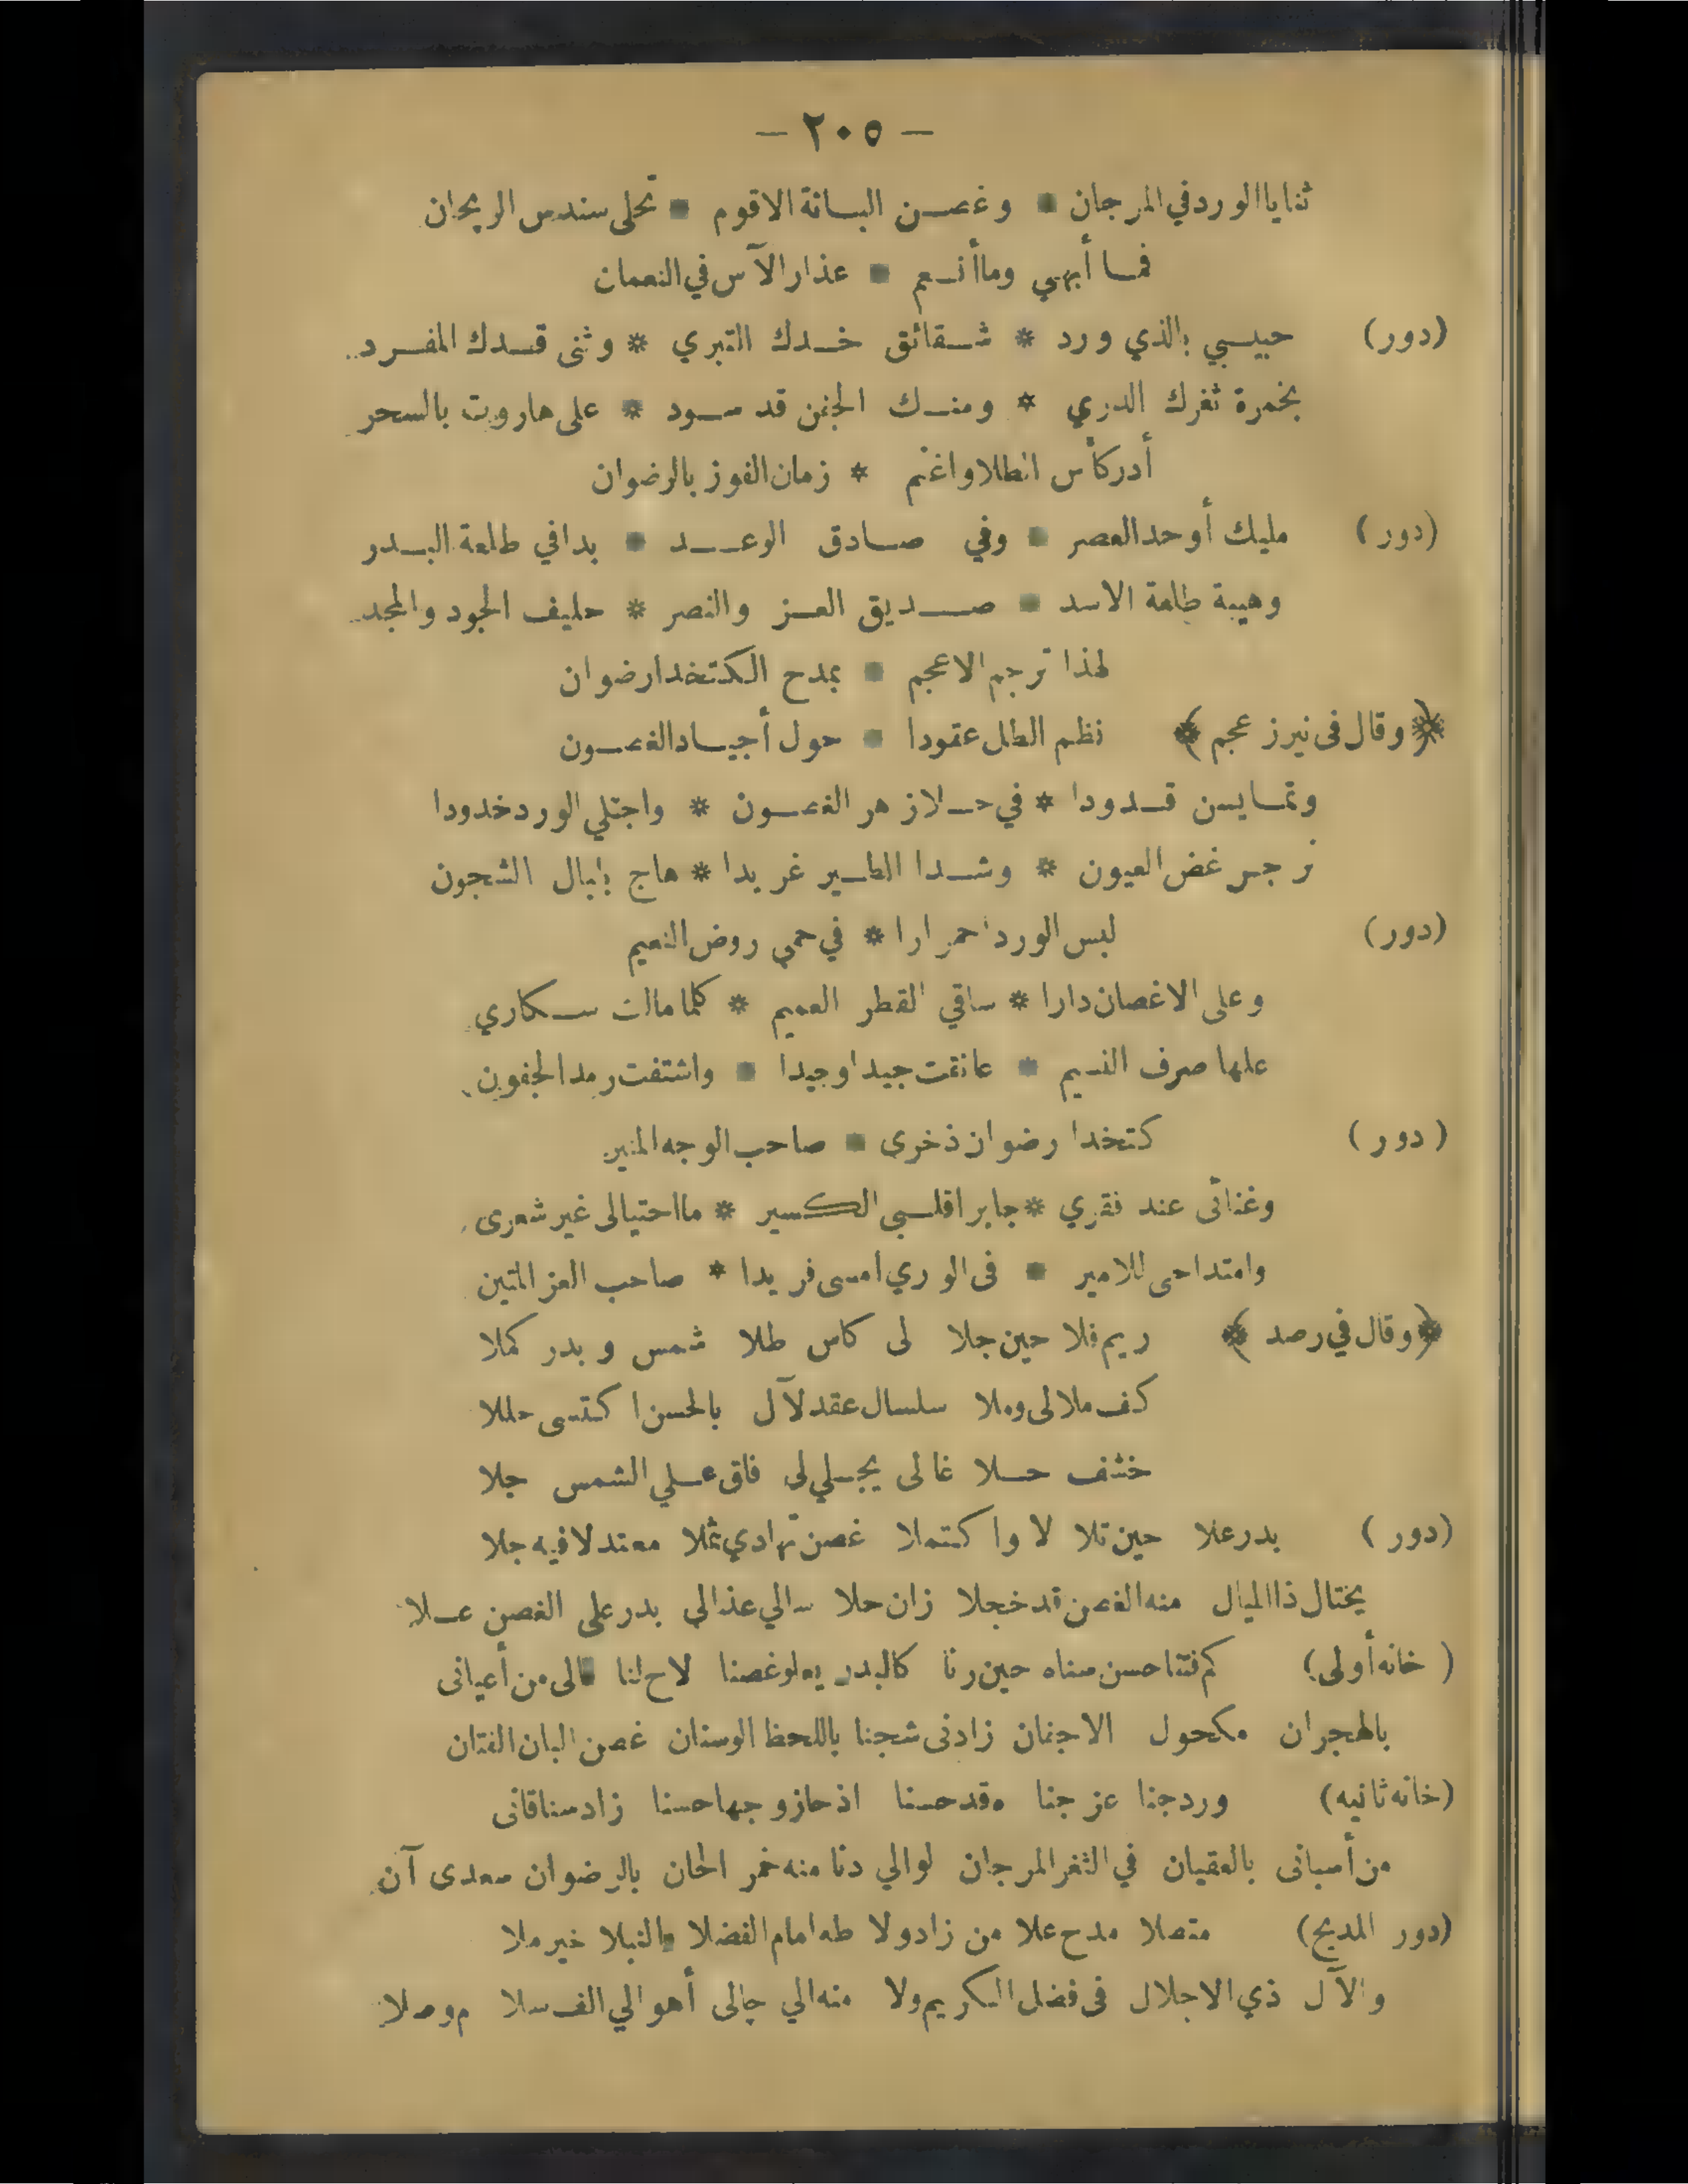 — ٢٠٥ —
ثنايا الورد في المرجان * وغصن البانة الاقوم * تحلى سندس الريحان
فما أبهي وما أنعم * عذار الآس في النعمان
(دور) حبيبي بالذي ورد * شقائق خدك التبري * وثنى قدك المفرد
بخمرة ثغرك الدري * ومنك الجفن قد سود * على هاروت بالسحر
أدر كأس الطلا واغنم * زمان الفوز بالرضوان
(دور) مليك أوحد العصر * وفي صادق الوعد * بدا في طلعة البدر
وهيبة طلعة الاسد * صديق العز والنصر * حليف الجود والمجد
لهذا ترجم الاعجم * بمدح الكتخدا رضوان
﴿وقال فى نيرز عجم﴾ نظم الطل عقودا * حول أجياد الغصون
وتمايسن قدودا * في حلا زهر الغصون * واجتلي الورد خدودا
نرجس غض العيون * وشدا الطير غريدا * هاج بلبال الشجون
(دور) لبس الورد احمرارا * في حمي روض النعيم
وعلى الاغصان دارا * ساقي القطر العميم * كلما مالت سكاري
علها صرف النسيم * عانقت جيدا وجيدا * واشتفت رمد الجفون
(دور) كتخدا رضوان ذخرى * صاحب الوجه المنير
وغنائى عند فقري * جابرا قلبي الكسير * ما احتيالى غير شعرى
وامتداحى للامير * فى الوري امسى فريدا * صاحب العز المتين
﴿وقال في رصد﴾ ريم فلا حين جلا لى كاس طلا شمس وبدر كملا
كف ملا لى وملا سلسال عقد لآل بالحسن اكتسى حللا
خشف حلا غالى يجلي لى فاق علي الشمس جلا
(دور) بدر علا حين تلا لا واكتملا غصن تهادي ثملا معتدلا فيه جلا
يختال ذا الميال منه الغصن قد خجلا زان حلا سالي عذالى بدر على الغصن علا
(خانه أولى) كم فتنا حسن سناه حين رنا كالبدر يعلو غصنا لاح لنا مالى من أعيانى
بالهجران مكحول الاجفان زادنى شجنا باللحظ الوسنان غصن البان الفتان
(خانه ثانيه) ورد جنا عز جنا وقد حسنا اذ حاز وجها حسنا زاد سنا قانى
من أسبانى بالعقيان في الثغر المرجان لوالي دنا منه خمر الحان بالرضوان سعدى آن
(دور المديح) متصلا مدح علا من زاد ولا طه امام الفضلا والنبلا خير ملا
والآل ذي الاجلال فى فضل الكريم ولا منه الي جالى أهوالي الف سلا موصلا